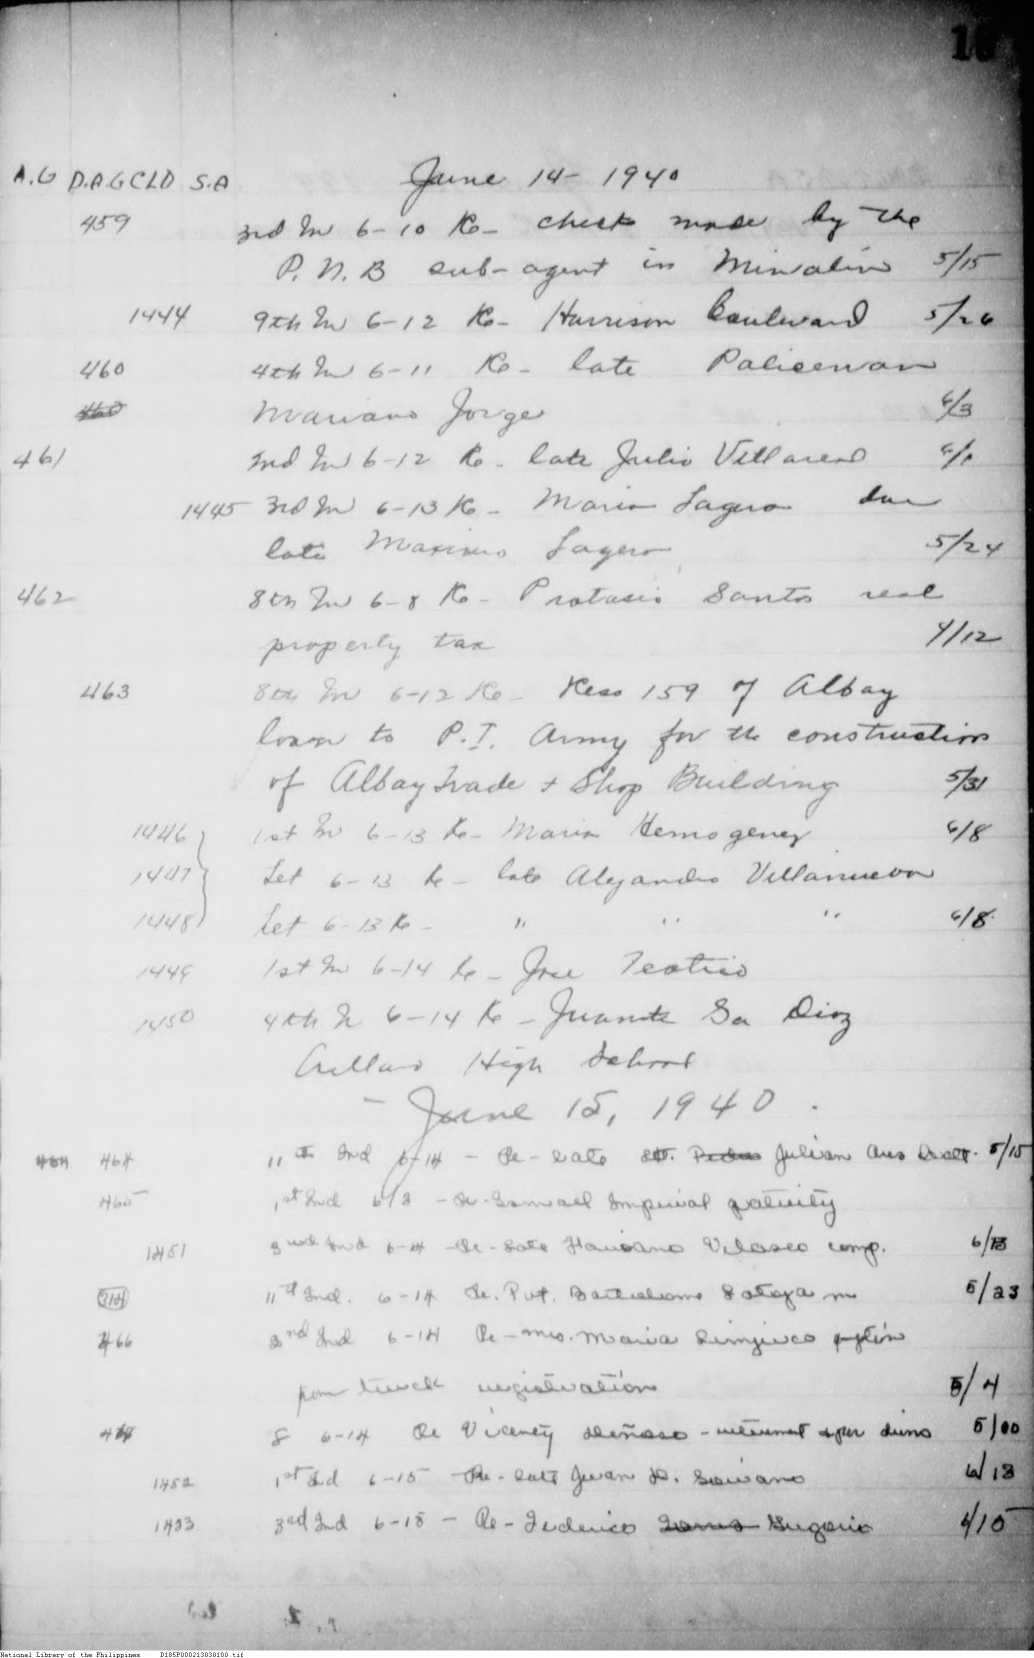 A.G D.A.G CLD S.A June 14 - 1940
459 3rd In 6-10 Re- check made by the
P.N.B sub-agent in Minalin 5/15
1444 9th In 6-12 Re- Harrison Boulevard 5/26
460 4th In 6-11 Re- late Policeman
460 Mariano Jorge 6/3
461 2nd In 6-12 Re- late Julio Villareal 6/1
1445 3rd In 6-13 Re- Maria Lagera due
late Maximo Lagera 5/24
462 8th In 6-8 Re- Protasio Santos real
property tax 4/12
463 8th In 6-12 Re- Reso 159 of Albay
loan to P.I. Army for the construction
of Albay Trade + Shop Building 5/31
1446 1st In 6-13 Re- Maria Hemogenez 6/8
1447 Let 6-13 Re- late Alejandro Villanueva
1448 Let 6-13 Re- " " " 6/8
1449 1st In 6-14 Re- Jose Teotico
1450 4th In 6-14 Re- Diaz
Arellano High School
- June 15, 1940.
464 464 11th Ind 6-14 - Re- late Pedro Julian 5/15
465 1st Ind - Re- Samuel Imperial gratuity
1451 2nd Ind 6-14 - Re- late Velasco comp. 6/13
11th Ind. 6-14 Re. Pvt. 5/23
466 2nd Ind 6-14 Re- Mrs. Maria
truck registration 5/4
8 6-14 Re 5/00
1452 1st Ind 6-15 - Re- late Juan 6/13
1453 3rd Ind 6-15 - Re- Federico 4/15
National Library of the Philippines D185P000213838100.tif